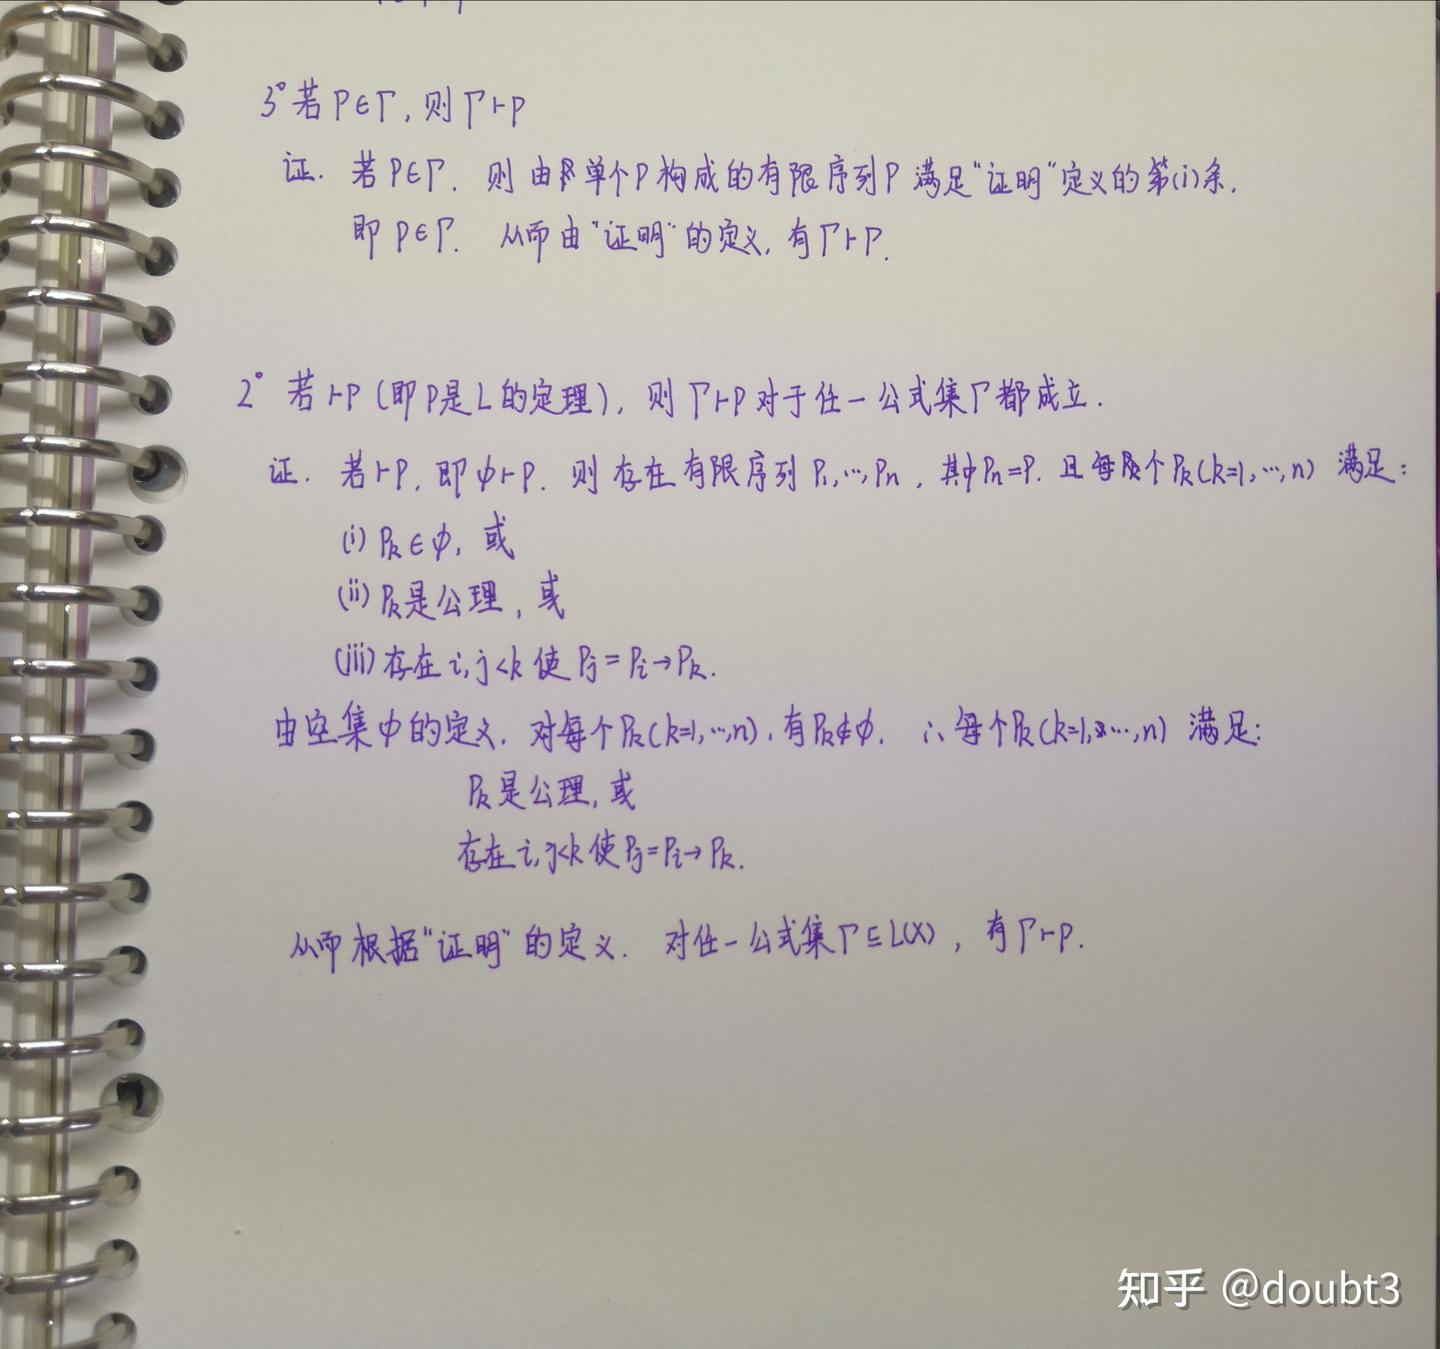 3° 若P∈Γ, 则Γ⊢P
证. 若P∈Γ. 则由单个P构成的有限序列P满足"证明"定义的第(i)条.
即P∈Γ. 从而由"证明"的定义, 有Γ⊢P.
2° 若⊢P (即P是L的定理), 则Γ⊢P对于任一公式集Γ都成立.
证. 若⊢P, 即φ⊢P. 则存在有限序列P₁,…,Pn, 其中Pn=P. 且每个Pk(k=1,…,n) 满足:
(i) Pk∈φ, 或
(ii) Pk是公理, 或
(iii) 存在i,j<k使Pj=Pi→Pk.
由空集φ的定义, 对每个Pk(k=1,…,n), 有Pk∉φ. ∴每个Pk(k=1,…,n) 满足:
Pk是公理, 或
存在i,j<k使Pj=Pi→Pk.
从而根据"证明"的定义. 对任一公式集Γ⊆L(X), 有Γ⊢P.
知乎 @doubt3